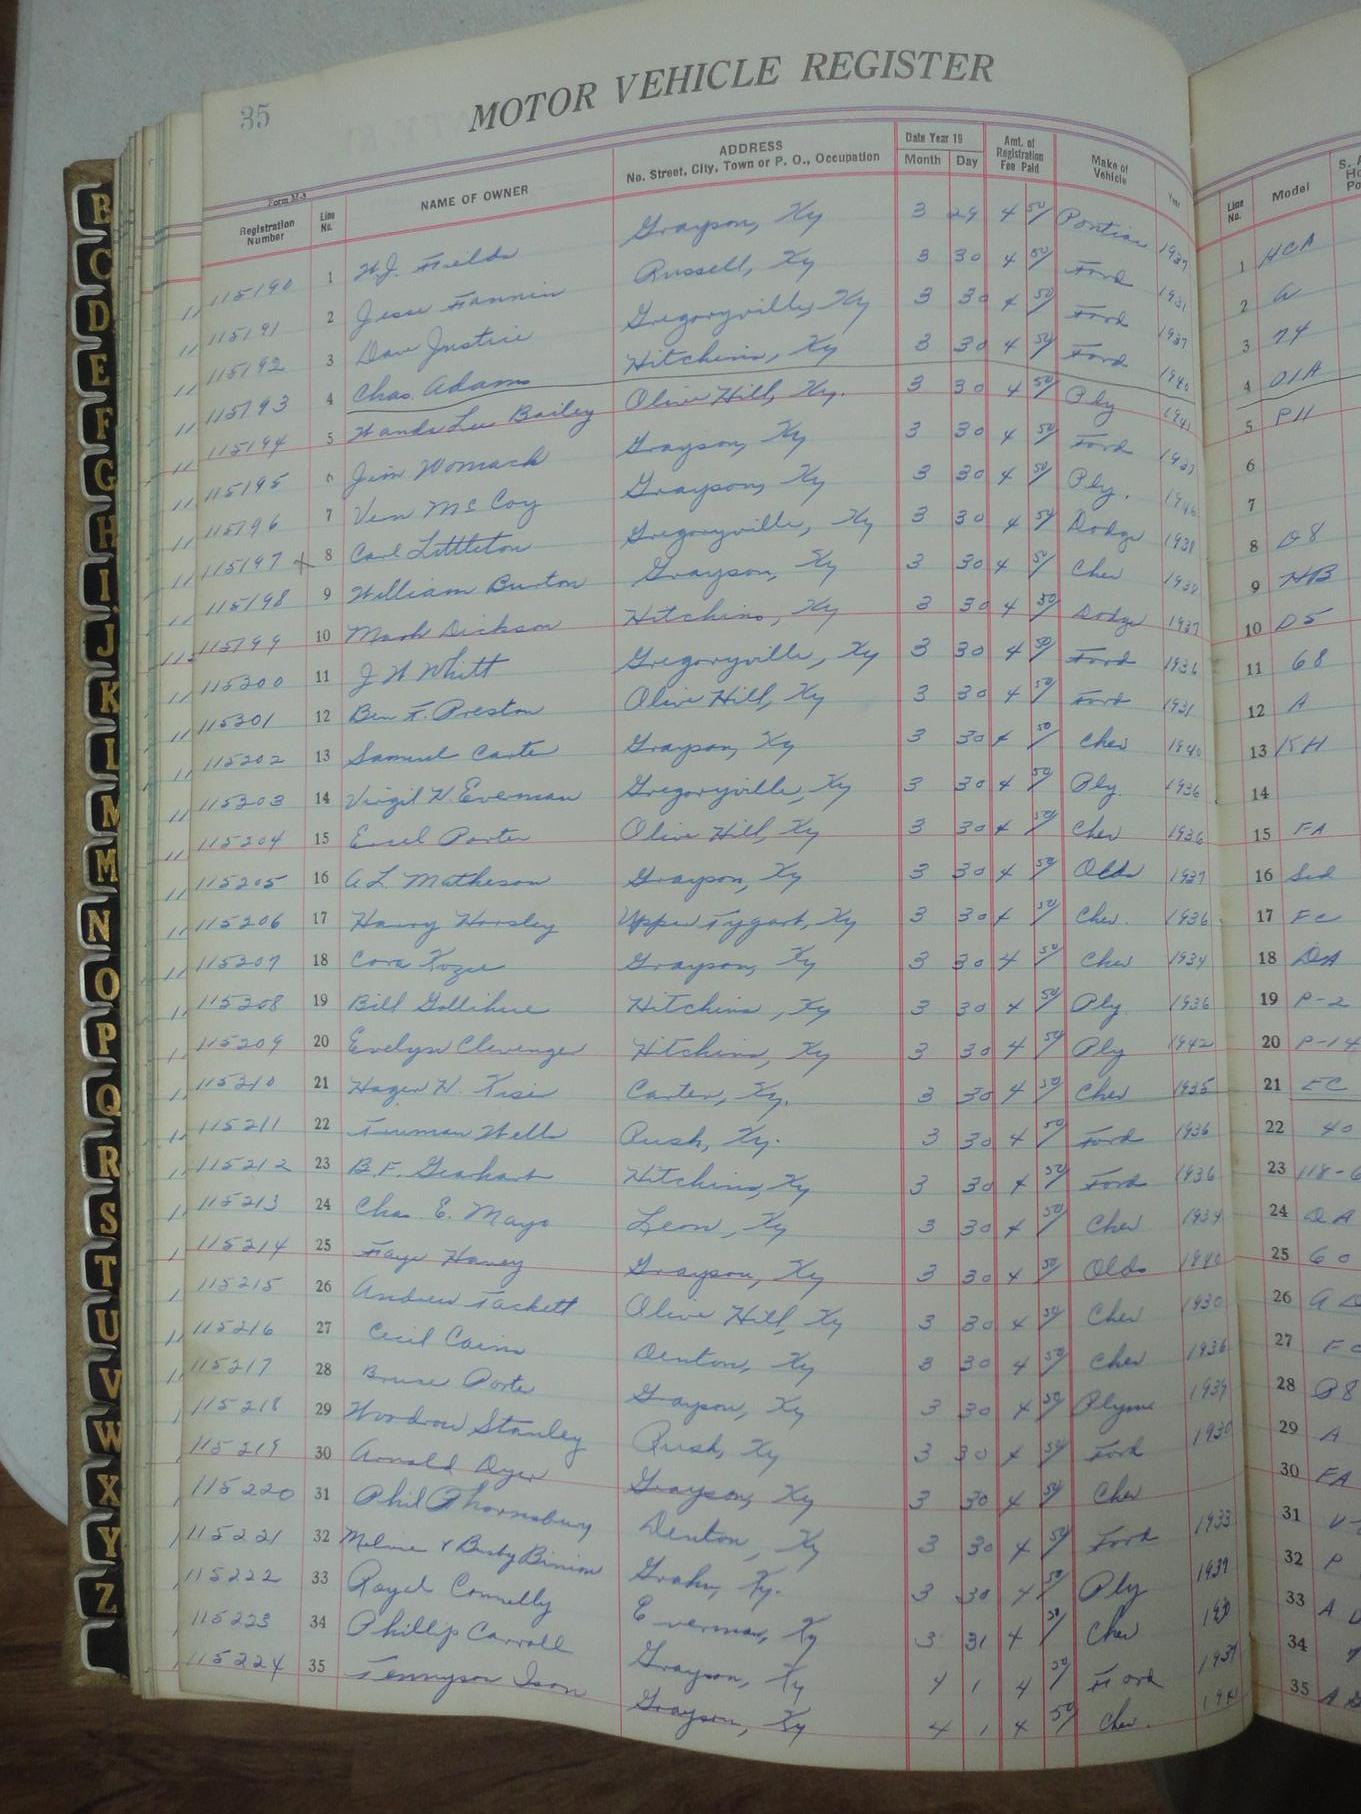 35
MOTOR VEHICLE REGISTER
Form M-3
Registration Number Line No. NAME OF OWNER ADDRESS No. Street, City, Town or P. O., Occupation Date Year 19 Month Day Amt. of Registration Fee Paid Make of Vehicle Year Line No. Model
115190 1 W.J. Fields Grayson, Ky 3 29 4 50 Pontiac 1937 1 HCA
115191 2 Jesse Fannin Russell, Ky 3 30 4 50 Ford 1931 2 A
115192 3 Dave Justice Gregoryville, Ky 3 30 4 50 Ford 1937 3 74
115193 4 Chas. Adams Hitchins, Ky 3 30 4 50 Ford 1940 4 01A
115194 5 Wanda Lee Bailey Olive Hill, Ky. 3 30 4 50 Ply 1941 5 P11
115195 6 Jim Womack Grayson, Ky 3 30 4 50 Ford 1937 6
115196 7 Vern McCoy Grayson, Ky 3 30 4 50 Ply. 1946 7
115197 x 8 Carl Littleton Gregoryville, Ky 3 30 4 50 Dodge 1938 8 D8
115198 9 William Burton Grayson, Ky 3 30 4 50 Chev 1938 9 HB
115199 10 Mark Dickson Hitchins, Ky 3 30 4 50 Dodge 1937 10 D5
115300 11 J W Whitt Gregoryville, Ky 3 30 4 50 Ford 1936 11 68
115301 12 Ben F. Preston Olive Hill, Ky 3 30 4 50 Ford 1931 12 A
115202 13 Samuel Carter Grayson, Ky 3 30 4 50 Chev 1940 13 KH
115203 14 Virgil H. Everman Gregoryville, Ky 3 30 4 50 Ply. 1936 14
115204 15 Porter Olive Hill, Ky 3 30 4 50 Chev 1936 15 FA
115205 16 A.L. Matheson Grayson, Ky 3 30 4 50 Olds 1937 16 Sed
115206 17 Harry Horsley Upper Tygart, Ky 3 30 4 50 Chev. 1936 17 FC
115207 18 Cora Kozee Grayson, Ky 3 30 4 50 Chev 1934 18 DA
115208 19 Bill Gollihue Hitchins, Ky 3 30 4 50 Ply. 1936 19 P-2
115209 20 Evelyn Clevenger Hitchins, Ky 3 30 4 50 Ply 1942 20 P-14
115210 21 Hager H. Kiser Carter, Ky. 3 30 4 50 Chev 1935 21 EC
115211 22 Truman Wells Rush, Ky. 3 30 4 50 Ford 1936 22 40
115212 23 B.F. Gearhart Hitchins, Ky 3 30 4 50 Ford 1936 23 118-6
115213 24 Chas. E. Mayo Leon, Ky 3 30 4 50 Chev 1934 24 DA
115214 25 Faye Haney Grayson, Ky 3 30 4 50 Olds 1940 25 60
115215 26 Andrew Tackett Olive Hill, Ky 3 30 4 50 Chev 1930 26 AD
115216 27 Cecil Cains Denton, Ky 3 30 4 50 Chev 1936 27 FC
115217 28 Bruce Porter Grayson, Ky 3 30 4 50 Plym 1939 28 P8
115218 29 Woodrow Stanley Rush, Ky 3 30 4 50 Ford 1930 29 A
115219 30 Arnold Dyer Grayson, Ky 3 30 4 50 Chev 30 FA
115220 31 Phil Thornsbury Denton, Ky 3 30 4 50 Ford 1933 31
115221 32 Melvie & Busby Binion Grahn, Ky. 3 30 4 50 Ply 1937 32 P
115222 33 Royal Connelly Everman, Ky 3 31 4 50 Chev 1930 33 A
115223 34 Phillip Carroll Grayson, Ky 4 1 4 50 Ford 1937 34
115224 35 Tennyson Ison Grayson, Ky 4 1 4 50 Chev. 1941 35
B
C
D
E
F
G
H
I
J
K
L
M
M
N
O
P
Q
R
S
T
U
V
W
X
Y
Z